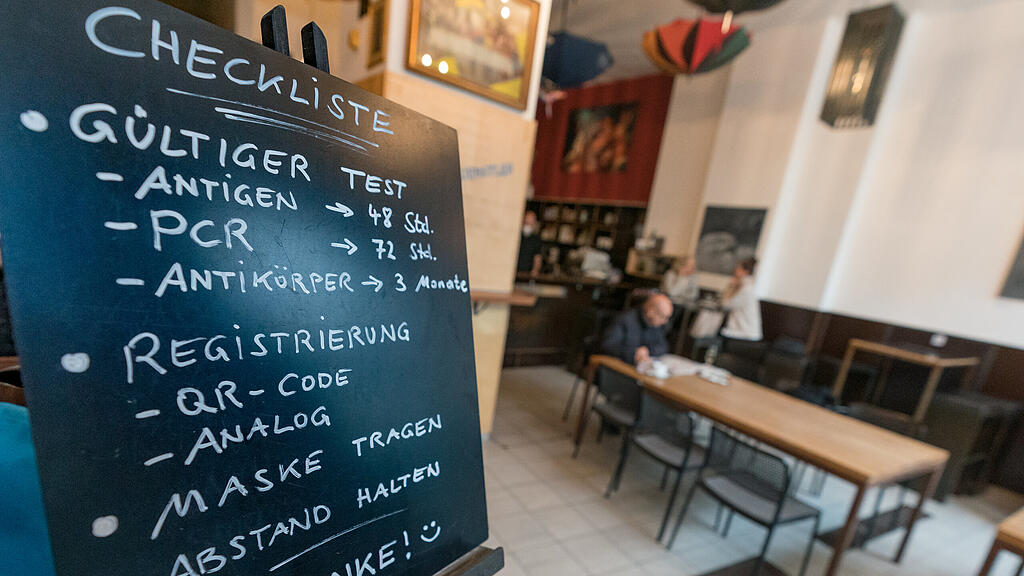 CHECKLiSTE
• GÜLTIGER TEST
- ANTIGEN → 48 Std.
- PCR → 72 Std.
- ANTIKÖRPER → 3 Monate
• REGISTRIERUNG
- QR-CODE
- ANALOG
• MASKE TRAGEN
ABSTAND HALTEN